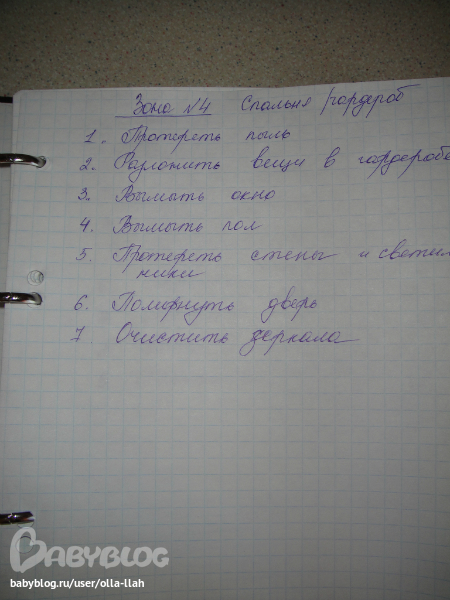 Зона №4 Спальня/гардероб
1. Протереть пыль
2. Разложить вещи в гардеробе
3. Вымыть окно
4. Вымыть пол
5. Протереть стены и светиль
ники
6. Помокнуть дверь
7 Очистить зеркала
BABYBLOG
babyblog.ru/user/olla-llah